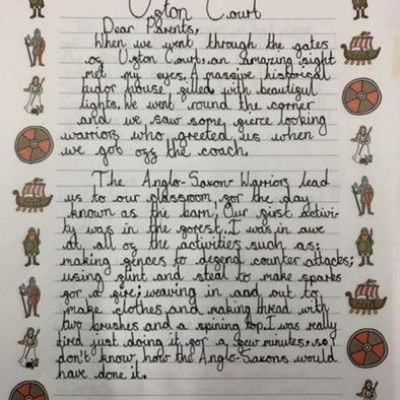 Ufton Court
Dear Parents,
When we went through the gates
of Ufton Court, an amazing sight
met my eyes. A massive historical
tudor house filled with beautiful
lights. We went round the corner
and we saw some fierce looking
warriors who greeted us when
we got off the coach.
The Anglo-Saxon-Warriors lead
us to our classroom for the day
known as the barn; Our first activi-
ty was in the forest. I was in awe
at all of the activities such as:
making fences to defend counter attacks;
using flint and steal to make sparks
for a fire; weaving in and out to
make clothes and making thread with
two brushes and a spining top. I was really
tired just doing it for a few minutes, so I
don't know how the Anglo-Saxons would
have done it.